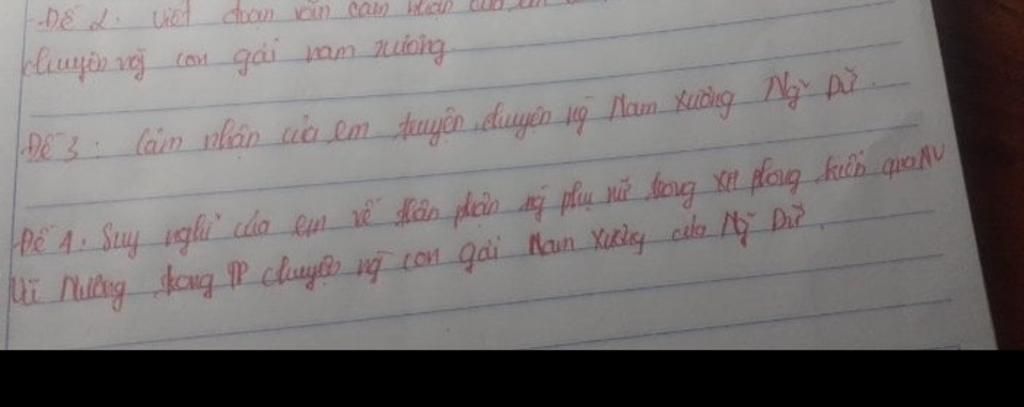 Đề 2. Viết đoạn văn cảm nhận của em
chuyện ng̃ con gái nam xương
Đề 3: Cảm nhận của em truyện chuyện ng̃ Nam Xương Ng̃ Dữ.
Đề 1. Suy nghĩ của em về thân phận ng̃ phụ nữ trong XH phong kiến qua NV
Vũ Nương trong TP chuyện ng̃ con gái Nam Xương của Ng̃ Dữ.